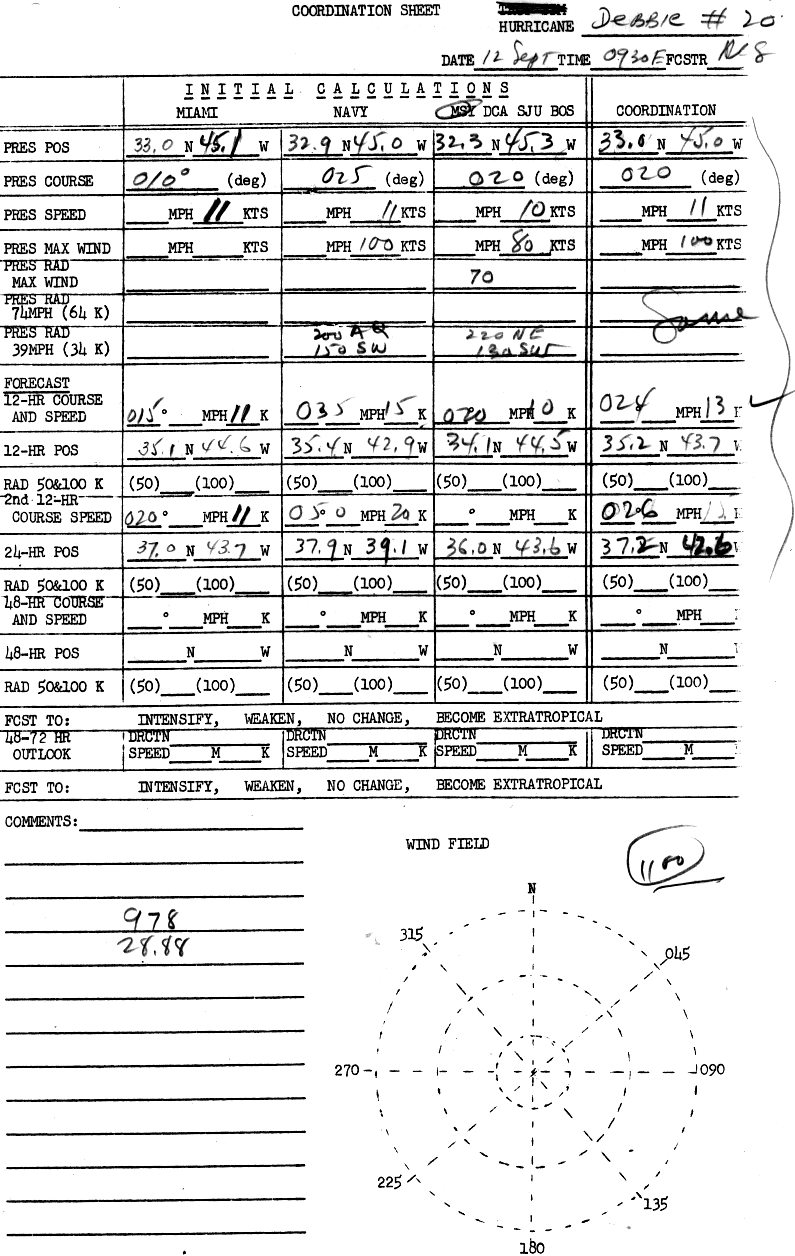 COORDINATION SHEET
HURRICANE DEBBIE # 20
DATE 12 Sept TIME 0930E FCSTR
INITIAL CALCULATIONS
MIAMI NAVY MSY DCA SJU BOS COORDINATION
PRES POS 33.0 N 45.1 W 32.9 N 45.0 W 32.3 N 45.3 W 33.0 N 45.0 W
PRES COURSE 010° (deg) 025 (deg) 020 (deg) 020 (deg)
PRES SPEED MPH 11 KTS MPH 11 KTS MPH 10 KTS MPH 11 KTS
PRES MAX WIND MPH KTS MPH 100 KTS MPH 80 KTS MPH 100 KTS
PRES RAD
MAX WIND 70
PRES RAD
74MPH (64 K) Same
PRES RAD 200 A Q 220 NE
39MPH (34 K) 150 SW 130 SW
FORECAST
12-HR COURSE
AND SPEED 015° MPH 11 K 035 MPH 15 K 020 MPH 10 K 024 MPH 13 K
12-HR POS 35.1 N 44.6 W 35.4 N 42.9 W 34.1 N 44.5 W 35.2 N 43.7 W
RAD 50&100 K (50) (100) (50) (100) (50) (100) (50) (100)
2nd 12-HR
COURSE SPEED 020° MPH 11 K 050 0 MPH 20 K ° MPH K 026 MPH K
24-HR POS 37.0 N 43.7 W 37.9 N 39.1 W 36.0 N 43.6 W 37.2 N 42.6 W
RAD 50&100 K (50) (100) (50) (100) (50) (100) (50) (100)
48-HR COURSE
AND SPEED ° MPH K ° MPH K ° MPH K ° MPH
48-HR POS N W N W N W N
RAD 50&100 K (50) (100) (50) (100) (50) (100) (50) (100)
FCST TO: INTENSIFY, WEAKEN, NO CHANGE, BECOME EXTRATROPICAL
48-72 HR DRCTN DRCTN DRCTN DRCTN
OUTLOOK SPEED M K SPEED M K SPEED M K SPEED M
FCST TO: INTENSIFY, WEAKEN, NO CHANGE, BECOME EXTRATROPICAL
COMMENTS:
WIND FIELD
1100
978
28.88
N
045
090
135
180
225
270
315